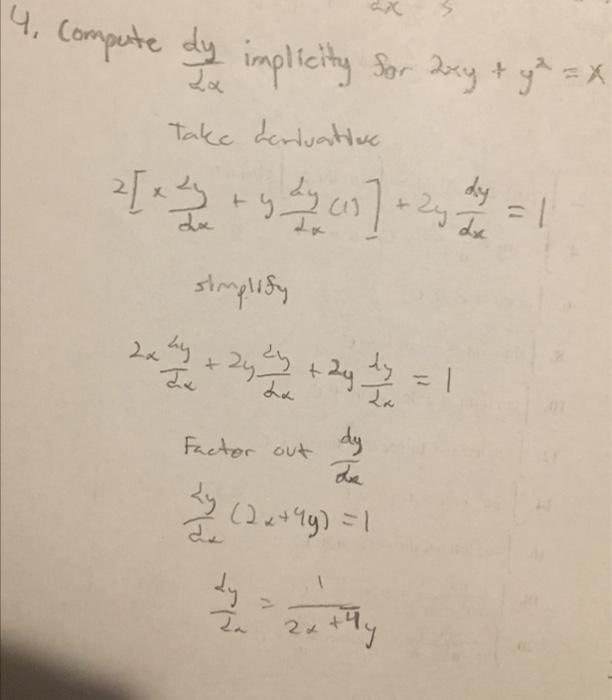 4. Compute dy/dx implicity for 2xy + y² = x
Take derivative
2[x dy/dx + y dy/dx (1)] + 2y dy/dx = 1
simplify
2x dy/dx + 2y dy/dx + 2y dy/dx = 1
Factor out dy/dx
dy/dx (2x+4y) = 1
dy/dx = 1/(2x+4y)